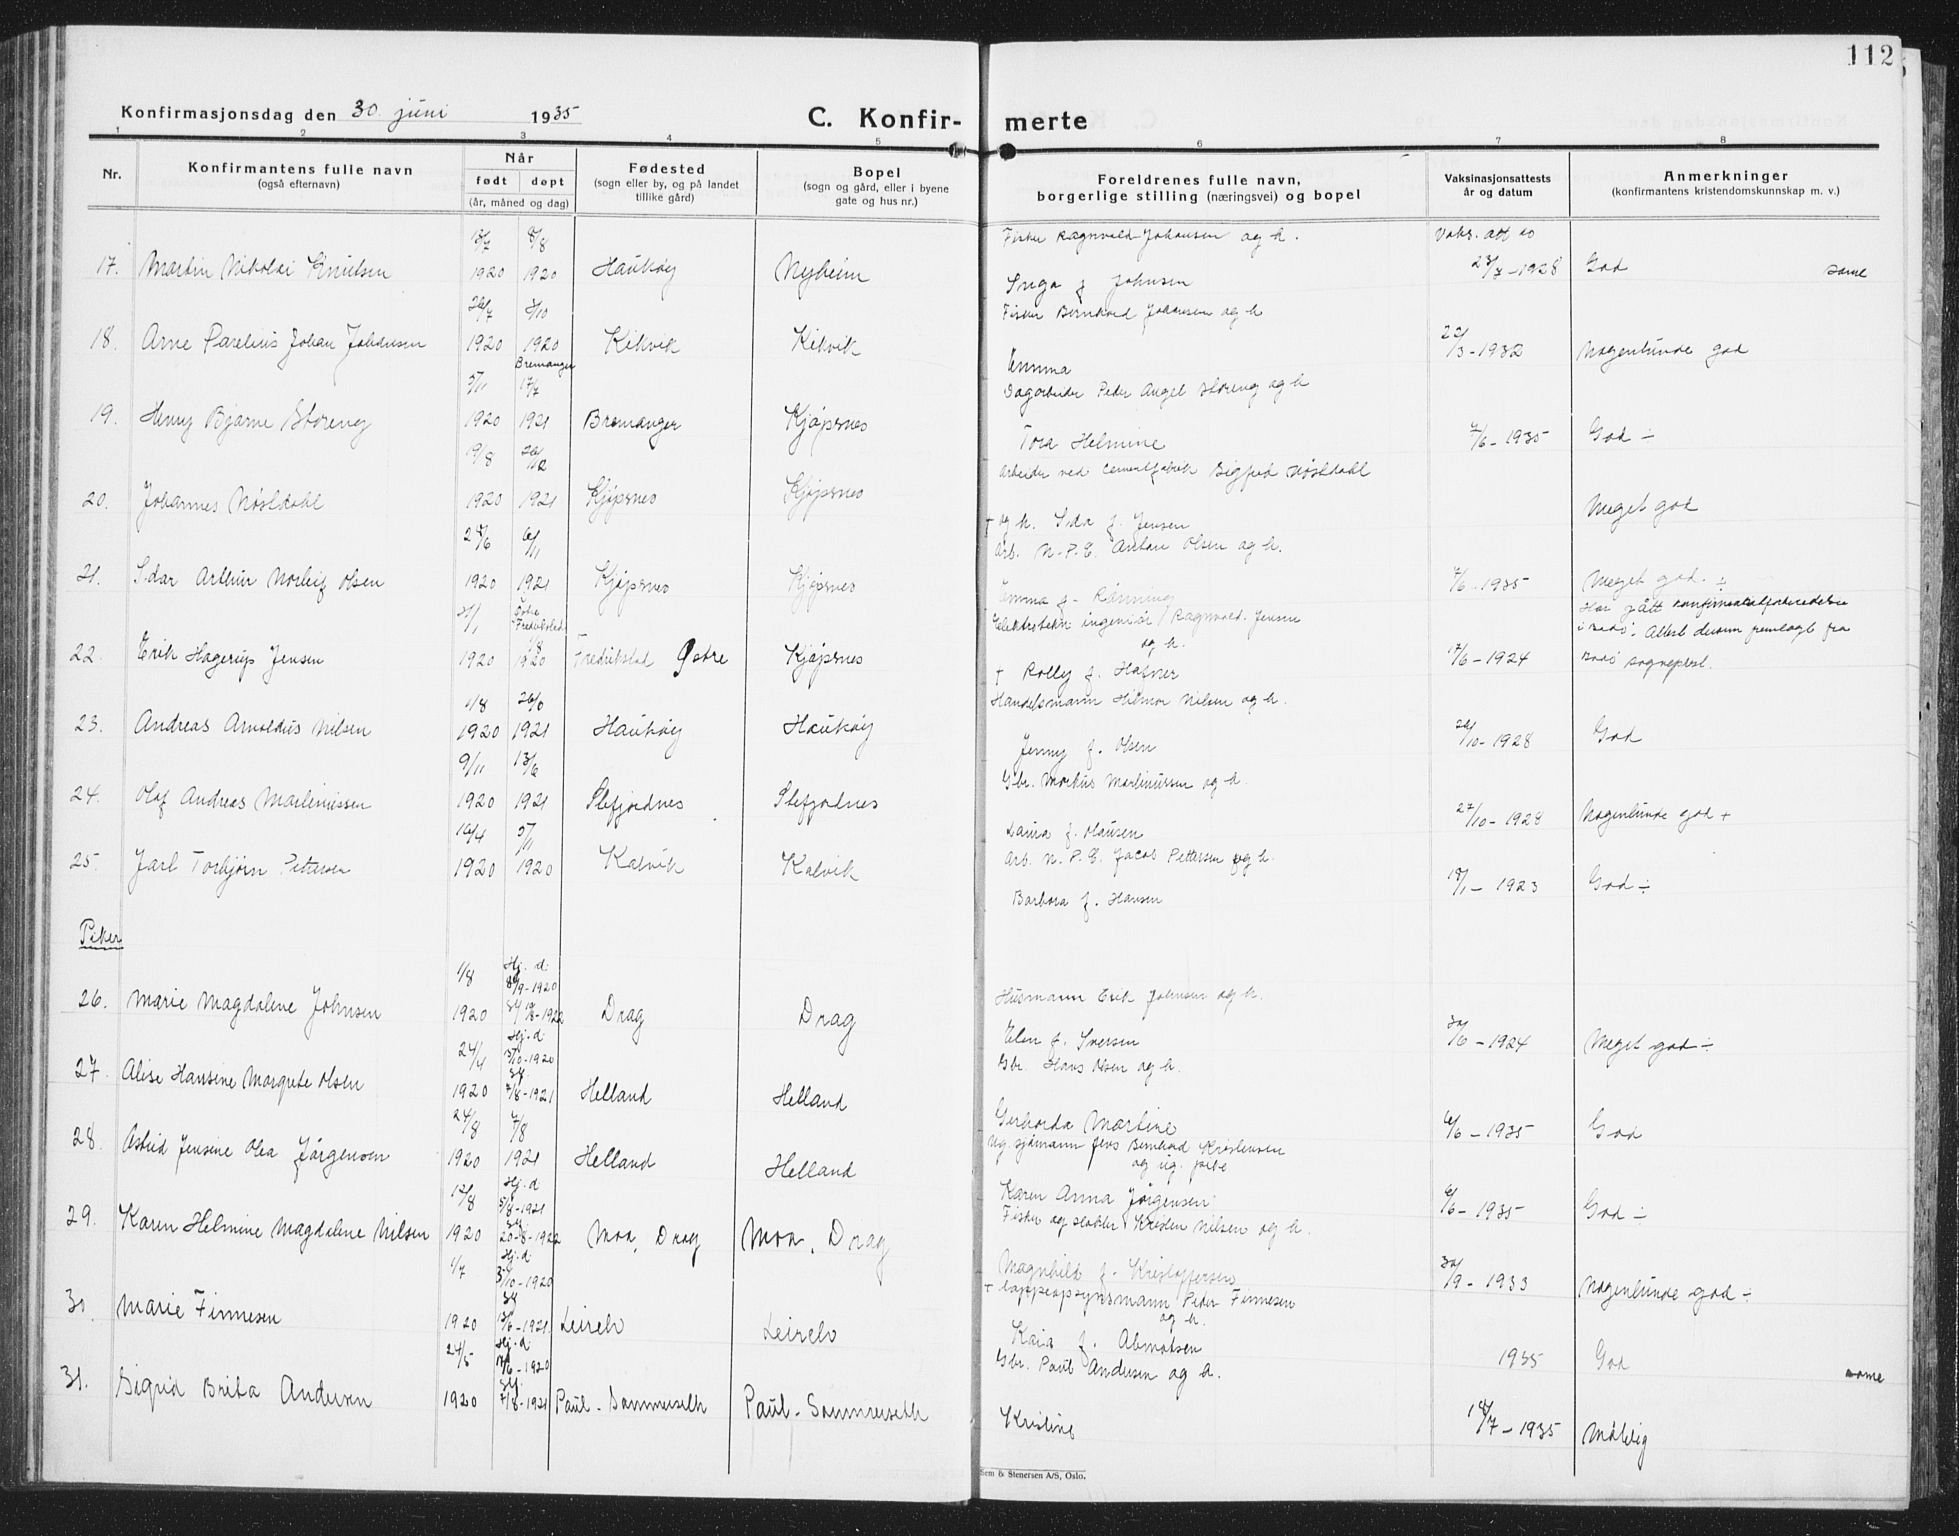 112
Konfirmasjonsdag den 30. juni 1935
C. Konfir- merte
1 2 3 4 5 6 7 8
Nr.
Konfirmantens fulle navn
(også efternavn)
Når
født døpt
(år, måned og dag)
Fødested
(sogn eller by, og på landet
tillike gård)
Bopel
(sogn og gård, eller i byene
gate og hus nr.)
Foreldrenes fulle navn,
borgerlige stilling (næringsvei) og bopel
Vaksinasjonsattests
år og datum
Anmerkninger
(konfirmantens kristendomskunnskap m. v.)
Fisker Ragnvald Johansen og h. Vaks. att
17. Martin Nikolai Knutsen 1920 1920 Haukøy Nyheim
Inga f. Johnsen 1928 God same
Fisker Bernhard Johansen og h
18. Arne Parelius Johan Johansen 1920 1920 Kikvik Kikvik
Emma 22/3-1932 Nogenlunde god
Bremanger
5/11 17/7 Dagarbeider Peder Angel Storeng og h
19. Henry Bjarne Storeng 1920 1921 Bremanger Kjøpsnes
Tora Helmine 7/6-1935 God ÷
19/8 26/12 Arbeider ved Cementfabrik Sigfred Nøstdahl
20. Johannes Nøstdahl 1920 1921 Kjøpsnes Kjøpsnes
+ og h. Ida f. Jensen Meget god
24/6 6/11 Arb. N.P.C. Anton Olsen og h.
21. Idar Arthur Norleif Olsen 1920 1921 Kjøpsnes Kjøpsnes
Emma f. Rønning 7/6-1935 Meget god. ÷
Østre Fredrikstad
Elektrotekn. ingeniør Ragnvald Jensen
og h.
Har gått konfirmantforberedelse
i Bodø. Attest derom fremlagt fra
Bodø sogneprest.
22. Erik Hagerup Jensen 1920 1920 Fredrikstad Østre Kjøpsnes
+ Rolly f. Hafner 17/6-1924
1/8 Handelsmann Hilmar Nilsen og h.
23. Andreas Arnoldus Nilsen 1920 1921 Haukøy Haukøy
Jenny f. Olsen 26/10-1928 God
9/11 13/6 Gbr. Markus Martinussen og h.
24. Olaf Andreas Martinussen 1920 1921 Stefjordnes Stefjordnes
Laura f. Olausen 27/10-1928 Nogenlunde god +
5/11 Arb. N.P.C. Jacob Pettersen og h.
25. Jarl Torbjørn Petersen 1920 1920 Kalvik Kalvik
Barbora f. Hansen 18/1-1923 God ÷
Piker
1/8 Hj. d. Husmann Erik Johnsen og h.
26. Marie Magdalene Johnsen 1920 Drag Drag
Elen f. Iversen 30/6-1924 Meget god ÷
24/4 Hj. d. Gbr. Hans Olsen og h.
27. Alise Hansine Margrete Olsen 1920 7/8-1921 Helland Helland
Gerharda Martine 6/6-1935 God
24/8 7/8 Ug. sjømann Jens Bernhard Kristensen
og ug. pike
28. Astrid Jensine Olea Jørgensen 1920 1921 Helland Helland
Karen Anna Jørgensen 6/6-1935 God ÷
12/8 Hj. d. Fisker og slakter Kristen Nilsen og h.
29. Karen Helmine Magdalene Nilsen 1920 20-8-1922 Moa, Drag Moa, Drag
Magnhild f. Kristoffersen 30/9-1933 Nogenlunde god ÷
1/7 Hj. d. + lappeopsynsmann Peder Finnesen
og h.
30. Marie Finnesen 1920 Leirelv Leirelv
Kaia f. Abmotsen 1935 God same
24/5 Hj. d. Gbr. Paul Andersen og h.
31. Sigrid Brita Andersen 1920 7/8-1921 Paul-Sommerseth Paul-Sommerseth
Kristine 18/7-1935 Måtelig
Sem & Stenersen A/S, Oslo.